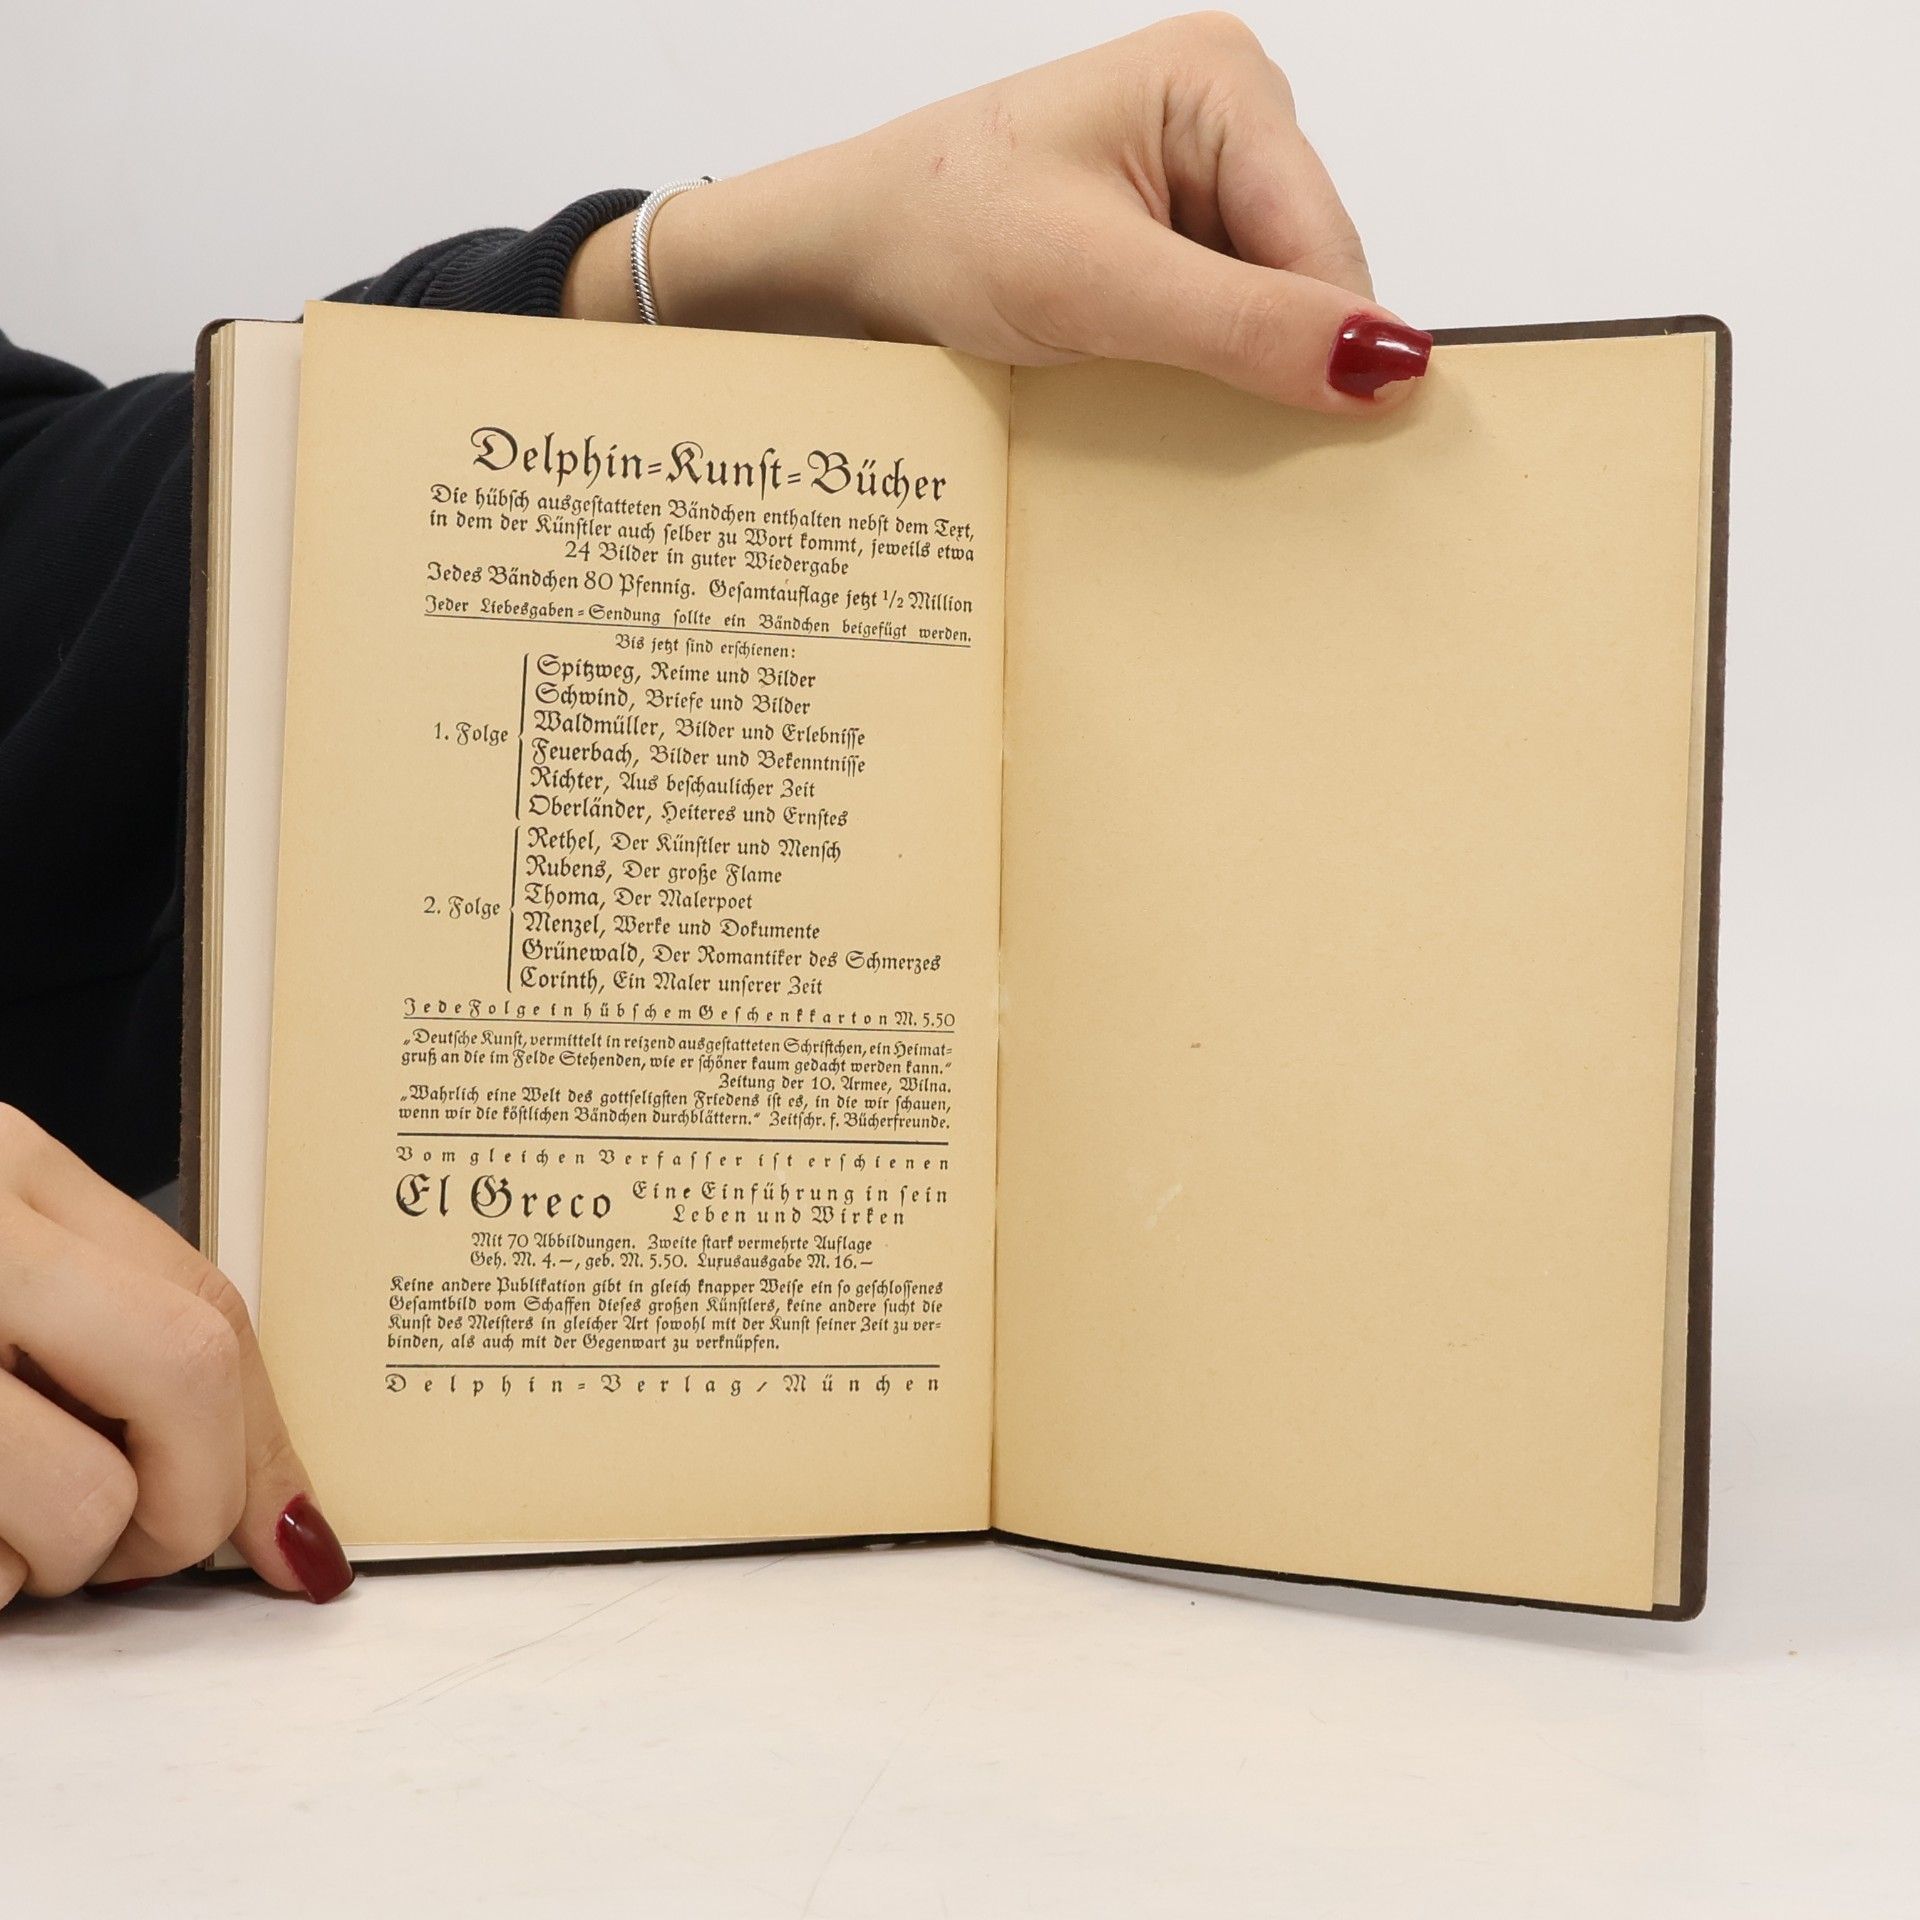 Delphin-Kunst-Bücher
Die hübſch ausgeſtatteten Bändchen enthalten nebſt dem Text,
in dem der Künſtler auch ſelber zu Wort kommt, jeweils etwa
24 Bilder in guter Wiedergabe
Jedes Bändchen 80 Pfennig. Geſamtauflage jetzt 1/2 Million
Jeder Liebesgaben-Sendung ſollte ein Bändchen beigefügt werden.
Bis jetzt ſind erſchienen:
1. Folge
Spitzweg, Reime und Bilder
Schwind, Briefe und Bilder
Waldmüller, Bilder und Erlebniſſe
Feuerbach, Bilder und Bekenntniſſe
Richter, Aus beſchaulicher Zeit
Oberländer, Heiteres und Ernſtes
2. Folge
Rethel, Der Künſtler und Menſch
Rubens, Der große Flame
Thoma, Der Malerpoet
Menzel, Werke und Dokumente
Grünewald, Der Romantiker des Schmerzes
Corinth, Ein Maler unſerer Zeit
Jede Folge in hübſchem Geſchenkkarton M. 5.50
„Deutſche Kunſt, vermittelt in reizend ausgeſtatteten Schriftchen, ein Heimat-
gruß an die im Felde Stehenden, wie er ſchöner kaum gedacht werden kann.“
Zeitung der 10. Armee, Wilna.
„Wahrlich eine Welt des gottſeligſten Friedens iſt es, in die wir ſchauen,
wenn wir die köſtlichen Bändchen durchblättern.“ Zeitſchr. f. Bücherfreunde.
Vom gleichen Verfaſſer iſt erſchienen
El Greco Eine Einführung in ſein
Leben und Wirken
Mit 70 Abbildungen. Zweite ſtark vermehrte Auflage
Geh. M. 4.—, geb. M. 5.50. Luxusausgabe M. 16.—
Keine andere Publikation gibt in gleich knapper Weiſe ein ſo geſchloſſenes
Geſamtbild vom Schaffen dieſes großen Künſtlers, keine andere ſucht die
Kunſt des Meiſters in gleicher Art ſowohl mit der Kunſt ſeiner Zeit zu ver-
binden, als auch mit der Gegenwart zu verknüpfen.
Delphin-Verlag / München